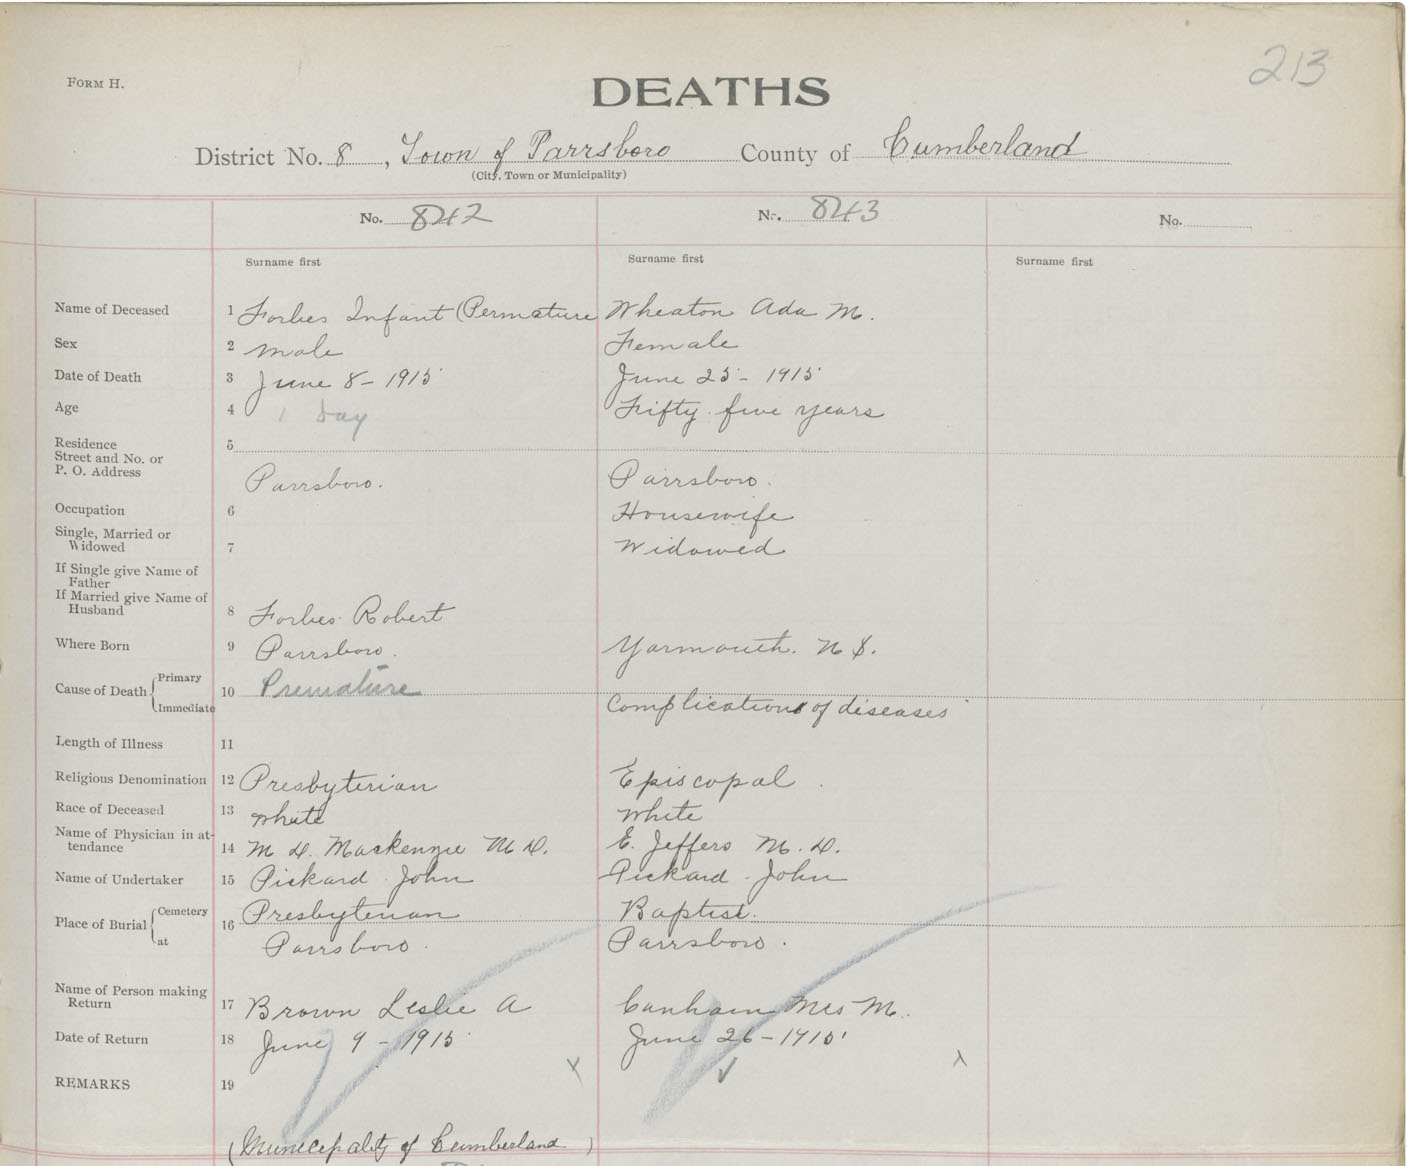 213
FORM H.
DEATHS
District No. 8, Town of Parrsboro County of Cumberland
(City, Town or Municipality)
No. 842 No. 843 No.
Surname first Surname first Surname first
Name of Deceased 1 Forbes Infant (Permature Wheaton Ada M.
Sex 2 male Female
Date of Death 3 June 8 - 1915 June 25 - 1915
Age 4 1 Day Fifty five years
Residence 5
Street and No. or
P. O. Address Parrsboro. Parrsboro.
Occupation 6 Housewife
Single, Married or
Widowed 7 Widowed
If Single give Name of
Father
If Married give Name of
Husband 8 Forbes Robert
Where Born 9 Parrsboro. Yarmouth. N S.
Cause of Death Primary 10 Premature
Immediate Complications of diseases
Length of Illness 11
Religious Denomination 12 Presbyterian Episcopal
Race of Deceased 13 white White
Name of Physician in at-
tendance 14 M D. Mackenzie M D. E. Jeffers M. D.
Name of Undertaker 15 Pickard John Pickard John
Place of Burial Cemetery 16 Presbyterian Baptist.
at Parrsboro. Parrsboro.
Name of Person making
Return 17 Brown Leslie A Canham Mrs M.
Date of Return 18 June 9 - 1915 June 26 - 1915
REMARKS 19
(Municipality of Cumberland)